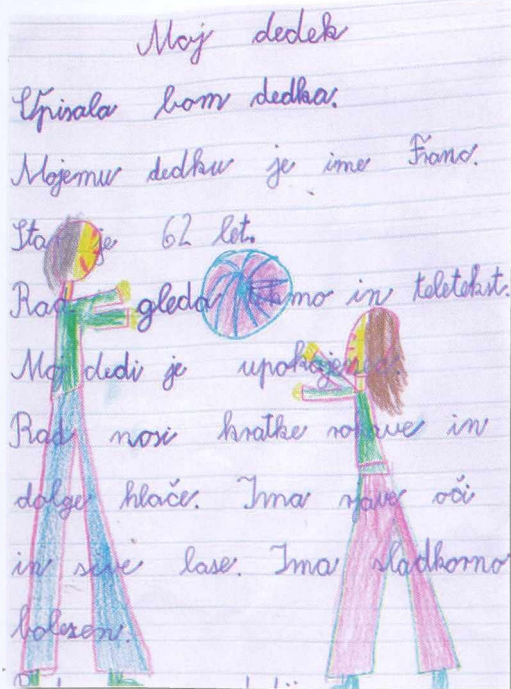 Moj dedek
Opisala bom dedka.
Mojemu dedku je ime Franc.
Star je 62 let.
Rad gleda in teletekst.
Moj dedi je upokojenec.
Rad nosi kratke rokave in
dolge hlače. Ima rjave oči
in sive lase. Ima sladkorno
bolezen.